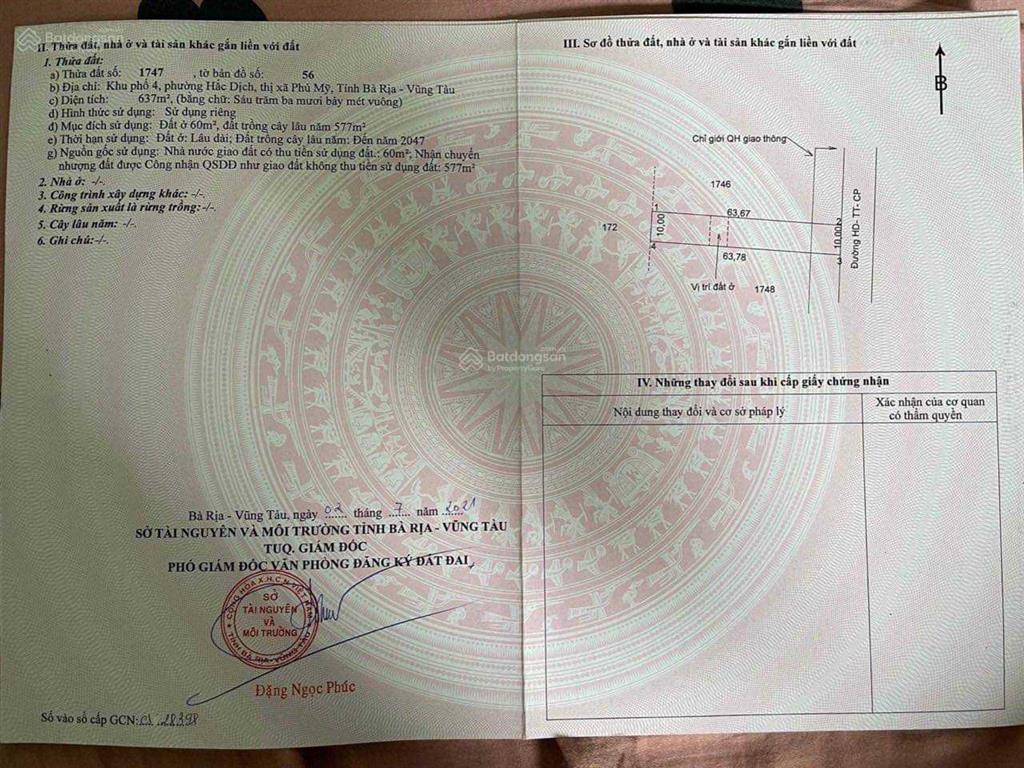 II. Thửa đất, nhà ở và tài sản khác gắn liền với đất
1. Thửa đất:
a) Thửa đất số: 1747 , tờ bản đồ số: 56
b) Địa chỉ: Khu phố 4, phường Hắc Dịch, thị xã Phú Mỹ, Tỉnh Bà Rịa - Vũng Tàu
c) Diện tích: 637m², (bằng chữ: Sáu trăm ba mươi bảy mét vuông)
d) Hình thức sử dụng: Sử dụng riêng
đ) Mục đích sử dụng: Đất ở 60m², đất trồng cây lâu năm 577m²
e) Thời hạn sử dụng: Đất ở: Lâu dài; Đất trồng cây lâu năm: Đến năm 2047
g) Nguồn gốc sử dụng: Nhà nước giao đất có thu tiền sử dụng đất.: 60m²; Nhận chuyển
nhượng đất được Công nhận QSDĐ như giao đất không thu tiền sử dụng đất: 577m²
2. Nhà ở: -/-.
3. Công trình xây dựng khác: -/-.
4. Rừng sản xuất là rừng trồng: -/-.
5. Cây lâu năm: -/-.
6. Ghi chú:-/-.
Bà Rịa - Vũng Tàu, ngày 02 tháng 7 năm 2021
SỞ TÀI NGUYÊN VÀ MÔI TRƯỜNG TỈNH BÀ RỊA - VŨNG TÀU
TUQ. GIÁM ĐỐC
PHÓ GIÁM ĐỐC VĂN PHÒNG ĐĂNG KÝ ĐẤT ĐAI
CỘNG HÒA X.H.C.N VIỆT NAM
SỞ
TÀI NGUYÊN
VÀ
MÔI TRƯỜNG
TỈNH BÀ RỊA - VŨNG TÀU
Đặng Ngọc Phúc
Số vào sổ cấp GCN: CS 28398
III. Sơ đồ thửa đất, nhà ở và tài sản khác gắn liền với đất
B
Chỉ giới QH giao thông
1746
172
1
63,67
2
10,00
10,00
4
63,78
3
Đường HD- TT- CP
Vị trí đất ở
1748
IV. Những thay đổi sau khi cấp giấy chứng nhận
Nội dung thay đổi và cơ sở pháp lý
Xác nhận của cơ quan
có thẩm quyền
Batdongsan
by PropertyGuru